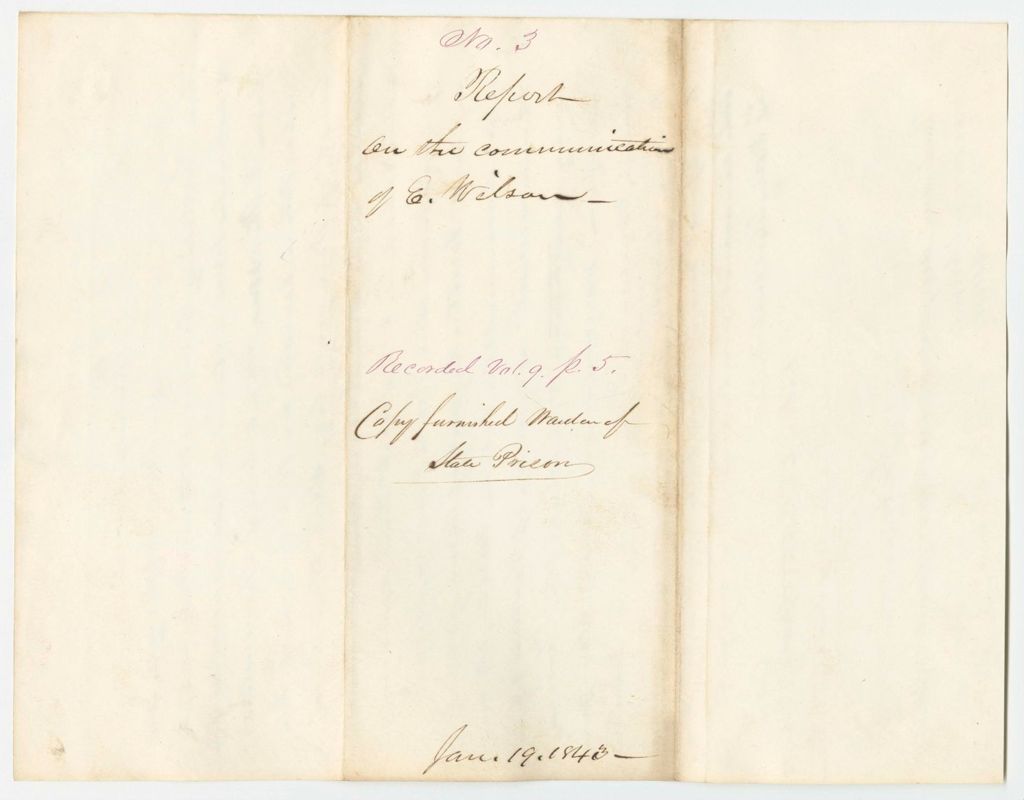 No. 3
Report
on the communication
of E. Wilson —
Recorded Vol. 9. p. 5.
Copy furnished Warden of
State Prison
Jan. 19. 1843 —